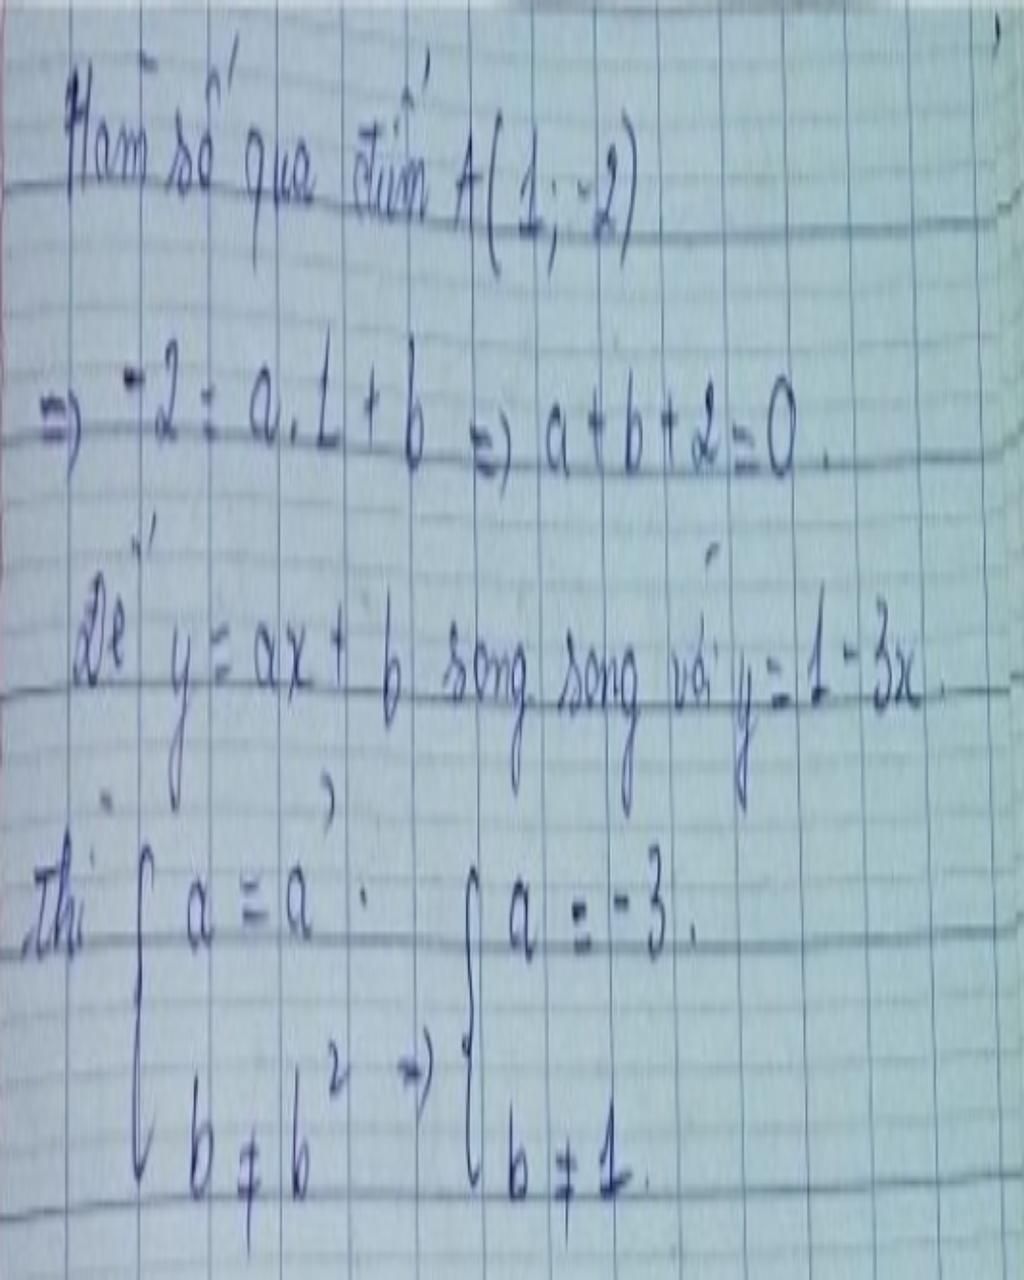 Hàm số qua điểm A(1; -2)
=> -2 = a.1 + b => a + b + 2 = 0.
Để y = ax + b song song với y = 1 - 3x.
Thì { a = a' . { a = -3.
b ≠ b² => b ≠ 1.